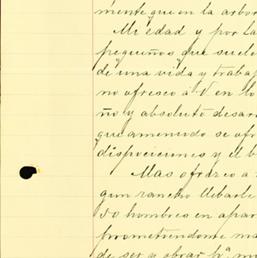 mente que en la arbor
Mi edad y por la
pequeños que suelo
de una vida y trabaj
no ofresco a V en lo
ño y absoluto desar
que amenudo se ofr
disposiciones y el b
Mas ofrezco a
gun rancho llebarle
50 hombres en apar
prometiendome ma
de ser y obrar